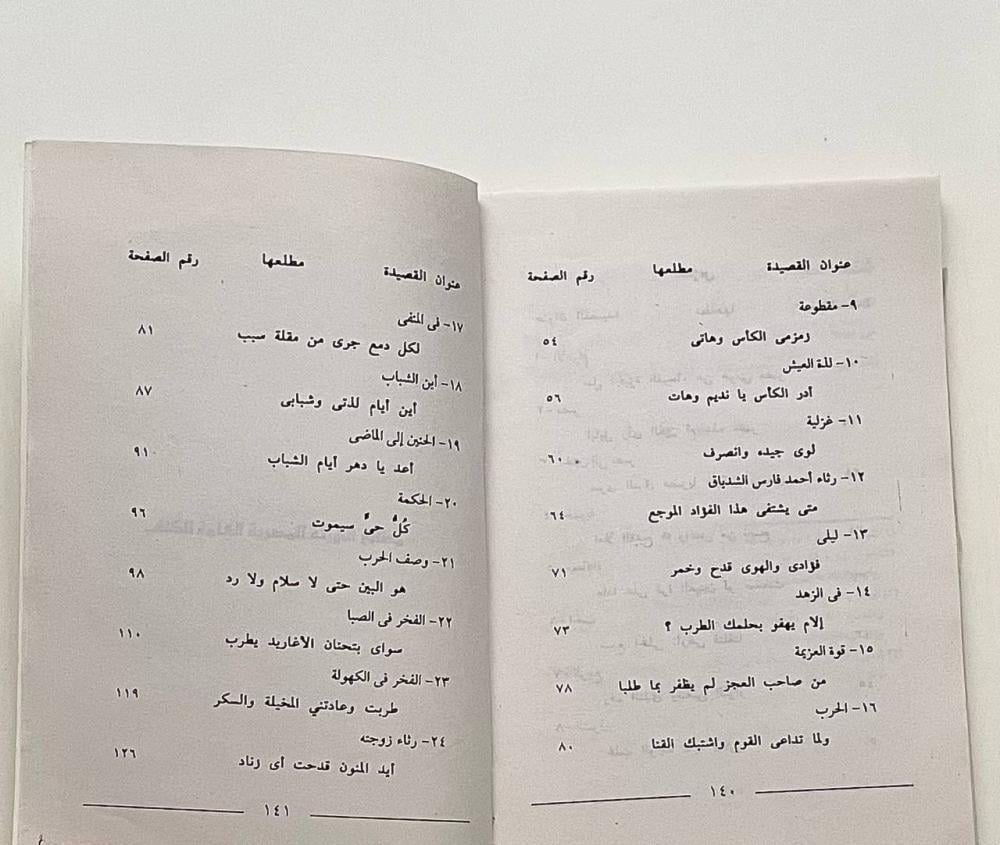 عنوان القصيدة مطلعها رقم الصفحة
٩- مقطوعة
رمزمى الكأس وهاتى ٥٤
١٠- للة العيش
أدر الكأس يا نديم وهات ٥٦
١١- غزلية
لوى جيده وانصرف ٦٠
١٢- رثاء أحمد فارس الشدياق
متى يشتفى هذا الفؤاد الموجع ٦٤
١٣- ليلى
فؤادى والهوى قدح وخمر ٧١
١٤- فى الزهد
إلام يهفو بحلمك الطرب ؟ ٧٣
١٥- قوة العزيمة
من صاحب العجز لم يظفر بما طلبا ٧٨
١٦- الحرب
ولما تداعى القوم واشتبك القنا ٨٠
١٤٠
عنوان القصيدة مطلعها رقم الصفحة
١٧- فى المنفى
لكل دمع جرى من مقلة سبب ٨١
١٨- أين الشباب
أين أيام لذتى وشبابى ٨٧
١٩- الحنين إلى الماضى
أعد يا دهر أيام الشباب ٩١
٢٠- الحكمة
كُلُّ حىٍّ سيموت ٩٦
٢١- وصف الحرب
هو البين حتى لا سلام ولا رد ٩٨
٢٢- الفخر فى الصبا
سواى بتحنان الأغاريد يطرب ١١٠
٢٣- الفخر فى الكهولة
طربت وعادتني المخيلة والسكر ١١٩
٢٤- رثاء زوجته
أيد المنون قدحت أى زناد ١٢٦
١٤١